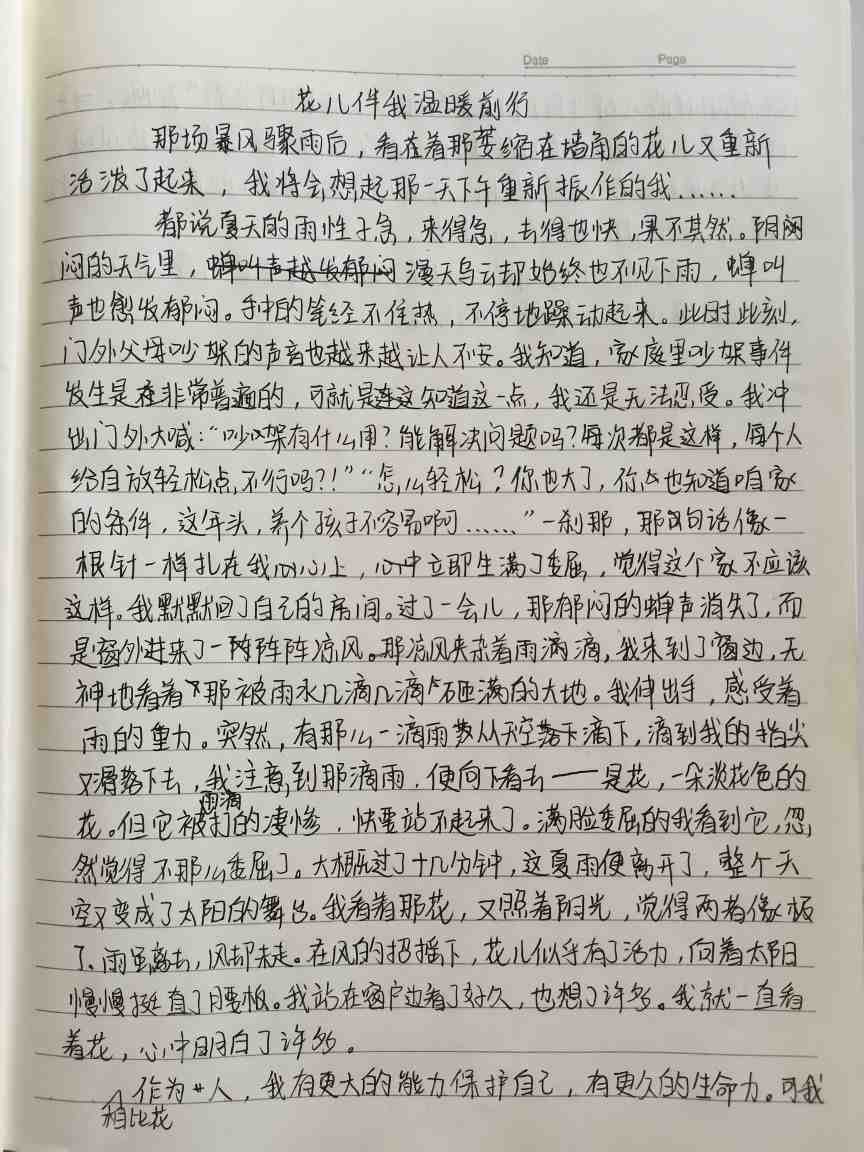 Date Page
花儿伴我温暖前行
那场暴风骤雨后，看在着那萎缩在墙角的花儿又重新
活泼了起来，我将会想起那一天下午重新振作的我……
都说夏天的雨性子急，来得急，去得也快，果不其然。阴闷
闷的天气里，蝉叫声越发郁闷漫天乌云却始终也不见下雨，蝉叫
声也愈发郁闷。手中的笔经不住热，不停地躁动起来。此时此刻，
门外父母吵架的声音也越来越让人不安。我知道，家庭里吵架事件
发生是在非常普遍的，可就是连这知道这一点，我还是无法忍受。我冲
出门外大喊：“吵架有什么用？能解决问题吗？每次都是这样，每个人
给自放轻松点，不行吗？！”“怎么轻松？你也大了，你也知道咱家
的条件，这年头，养个孩子不容易啊……”一刹那，那句话像一
根针一样扎在我心上，心中立即生满了委屈，觉得这个家不应该
这样。我默默回了自己的房间。过了一会儿，那郁闷的蝉声消失了，而
是窗外进来了一阵阵凉风。那凉风夹杂着雨滴，我来到了窗边，无
神地看着下那被雨水几滴几滴砸满的大地。我伸出手，感受着
雨的重力。突然，有那么一滴雨从天空落下滴下，滴到我的指尖
又滑落下去，我注意到那滴雨，便向下看去——是花，一朵淡花色的
花。但它被雨滴打的凄惨，快要站不起来了。满脸委屈的我看到它，忽
然觉得不那么委屈了。大概过了十几分钟，这夏雨便离开了，整个天
空又变成了太阳的舞台。我看着那花，又照着阳光，觉得两者像极
了。雨虽离去，风却未走。在风的招摇下，花儿似乎有了活力，向着太阳
慢慢挺直了腰板。我站在窗户边看了好久，也想了许多。我就一直看
着花，心中明白了许多。
相比花作为人，我有更大的能力保护自己，有更久的生命力。可我